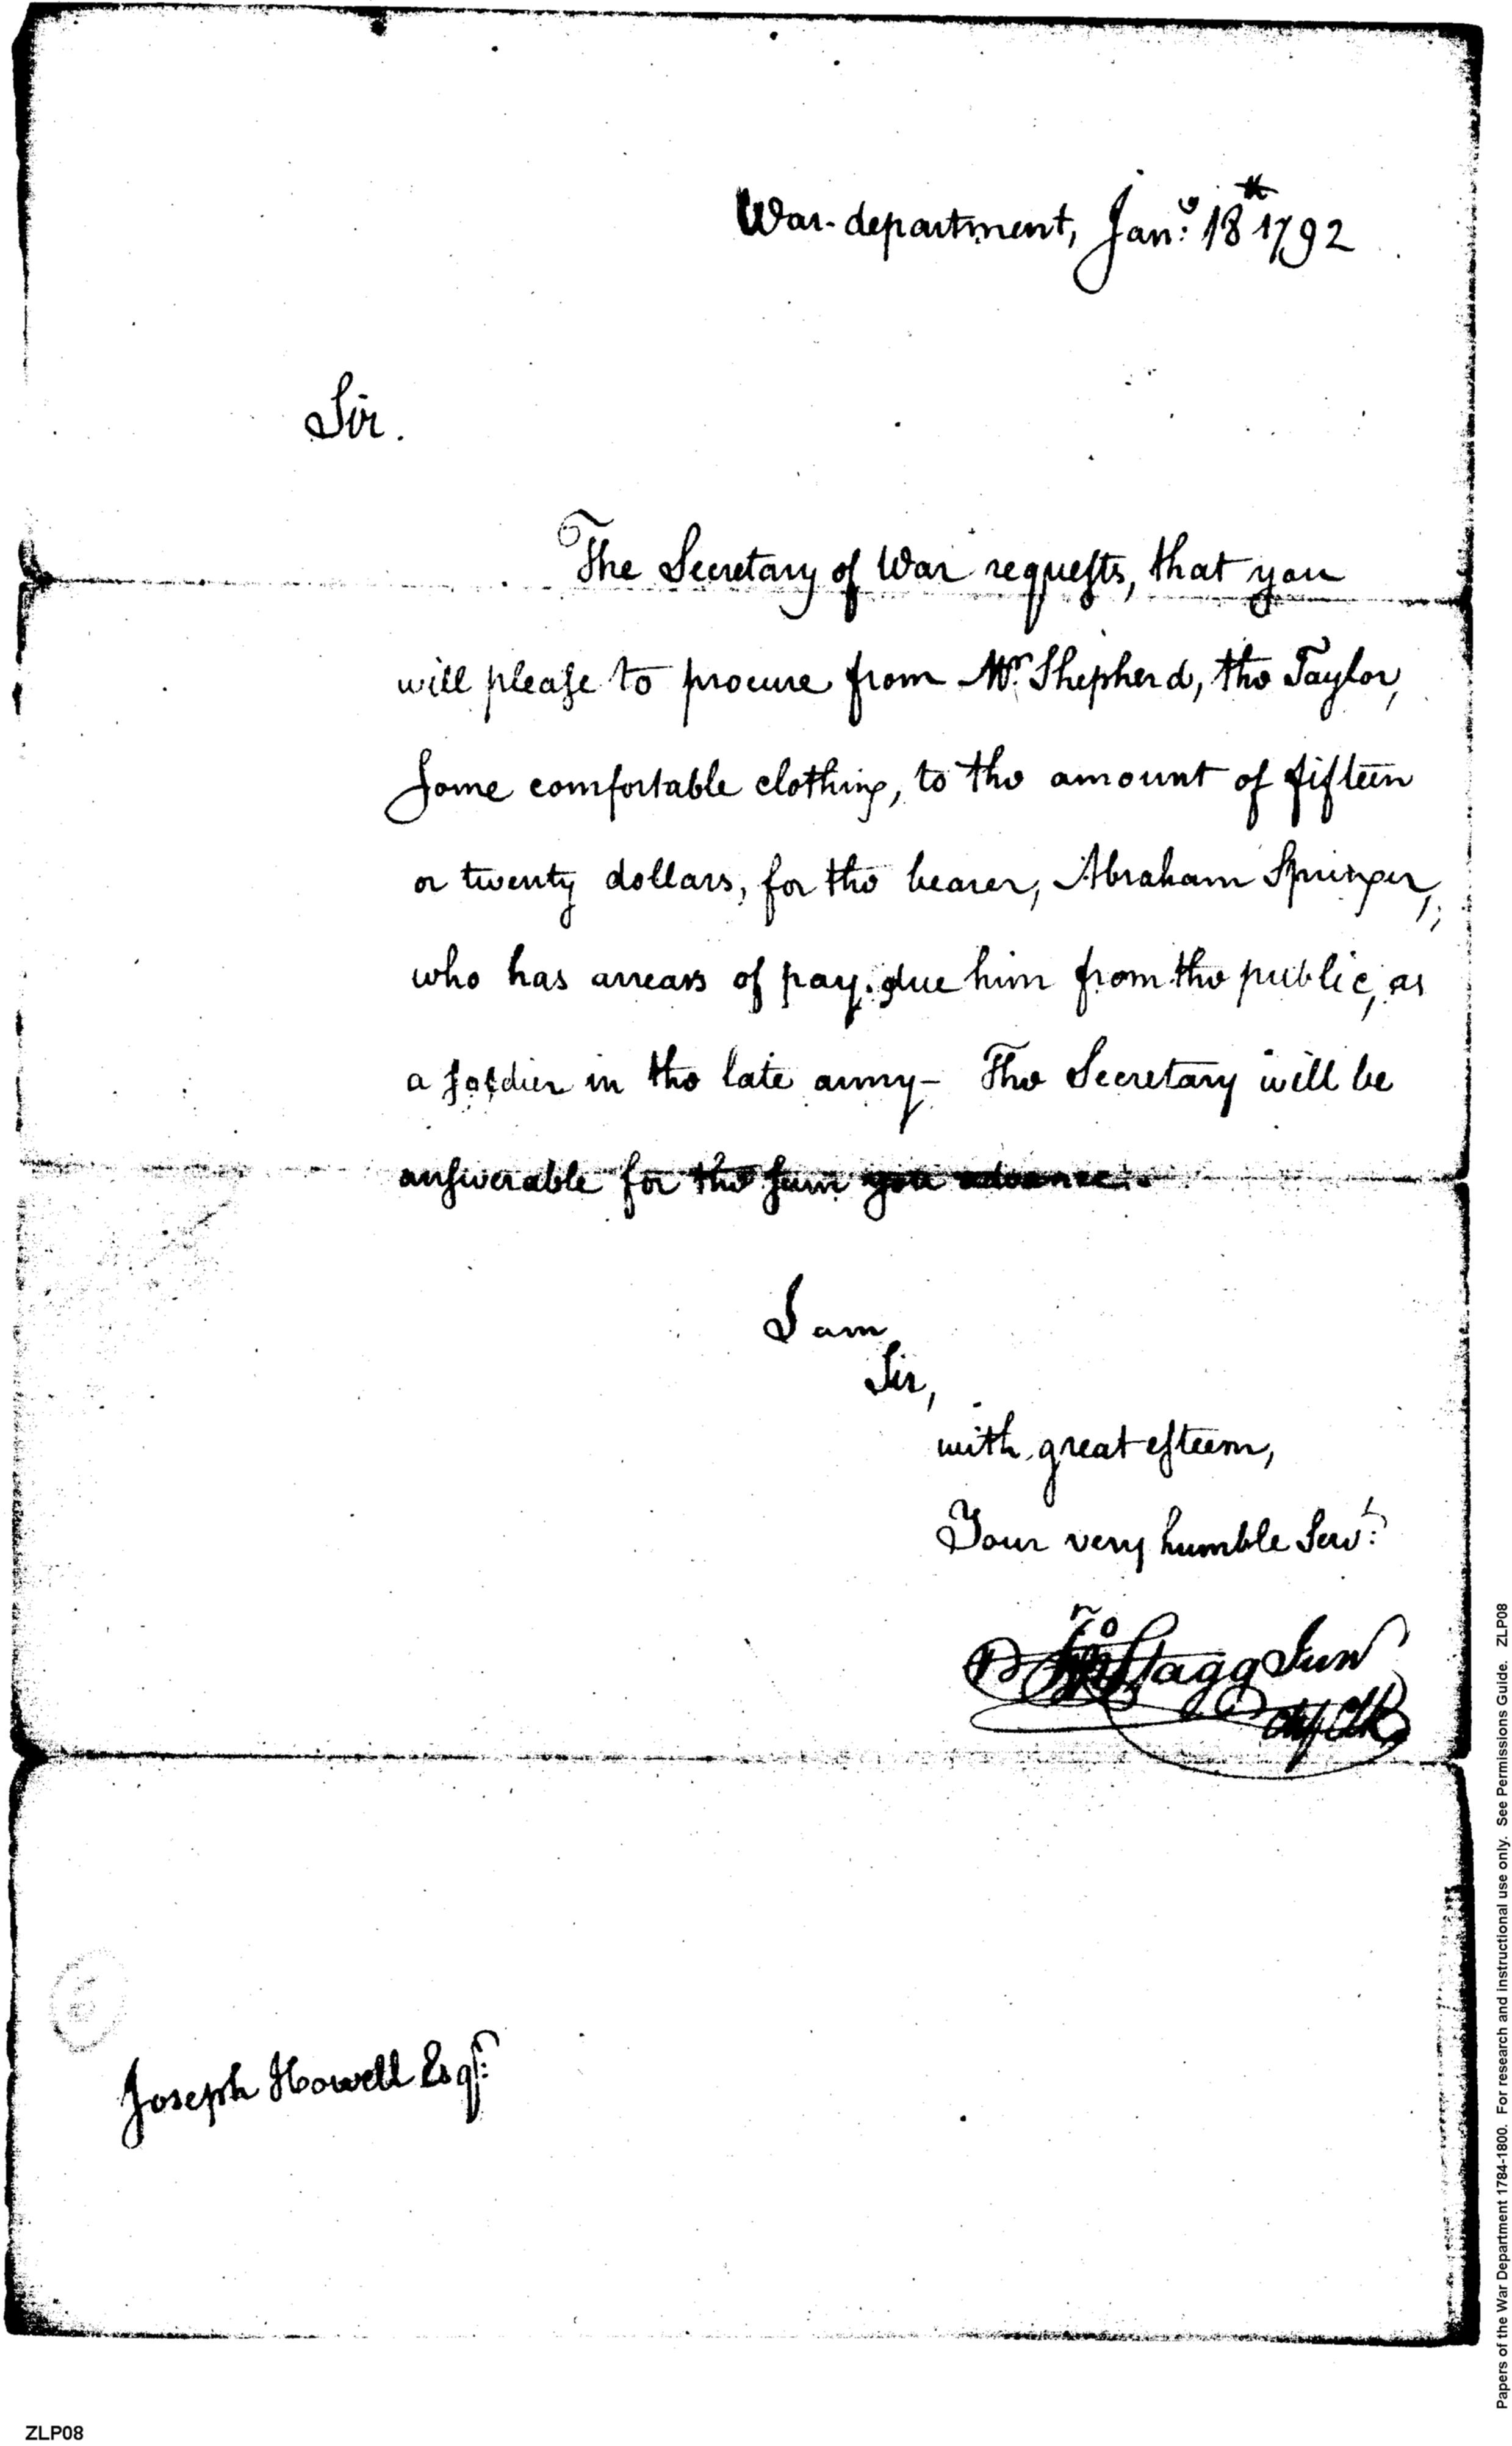 War-department, Jan.y 18th 1792
Sir.
The Secretary of War requests, that you
will please to procure from Mr. Shepherd, the Taylor,
some comfortable clothing, to the amount of fifteen
or twenty dollars, for the bearer, Abraham Springer,
who has arrears of pay due him from the public, as
a soldier in the late army- The Secretary will be
answerable for the sum you advance.
I am
Sir,
with great esteem,
Your very humble Servt.
Jno Stagg Junr
chf Clk
Joseph Howell Esqr.
Papers of the War Department 1784-1800. For research and instructional use only. See Permissions Guide. ZLP08
ZLP08